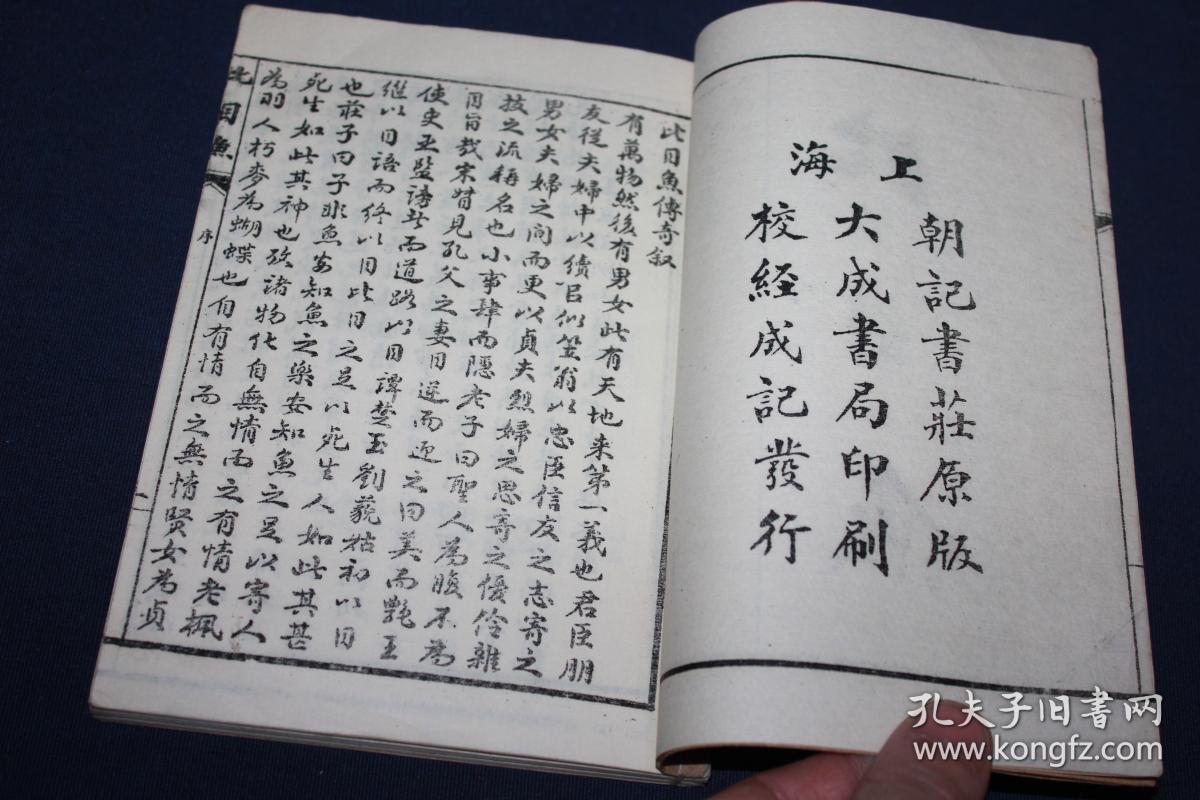 上海
朝記書莊原版
大成書局印刷
校經成記發行
比目魚傳奇叙
有萬物然後有男女此有天地来第一義也君臣朋
友從夫婦中以續后似笠翁以忠臣信友之志寄之
男女夫婦之间而更以貞夫烈婦之思寄之優伶雜
技之流稱名也小事肆而隱老子曰聖人為腹不為
目旨哉宋督見孔父之妻目逆而迎之曰美而艷王
使史巫監謗而道路以目譚楚玉劉藐姑初以目
继以目語而终以目比目之足以死生人如此其甚
也莊子曰子非魚安知魚之樂安知魚之足以寄人
死生如此其神也故諸物化自無情而之有情老楓
為羽人朽麥為蝴蝶也自有情而之無情賢女為貞
比目魚
序
一
孔夫子旧书网
www.kongfz.com